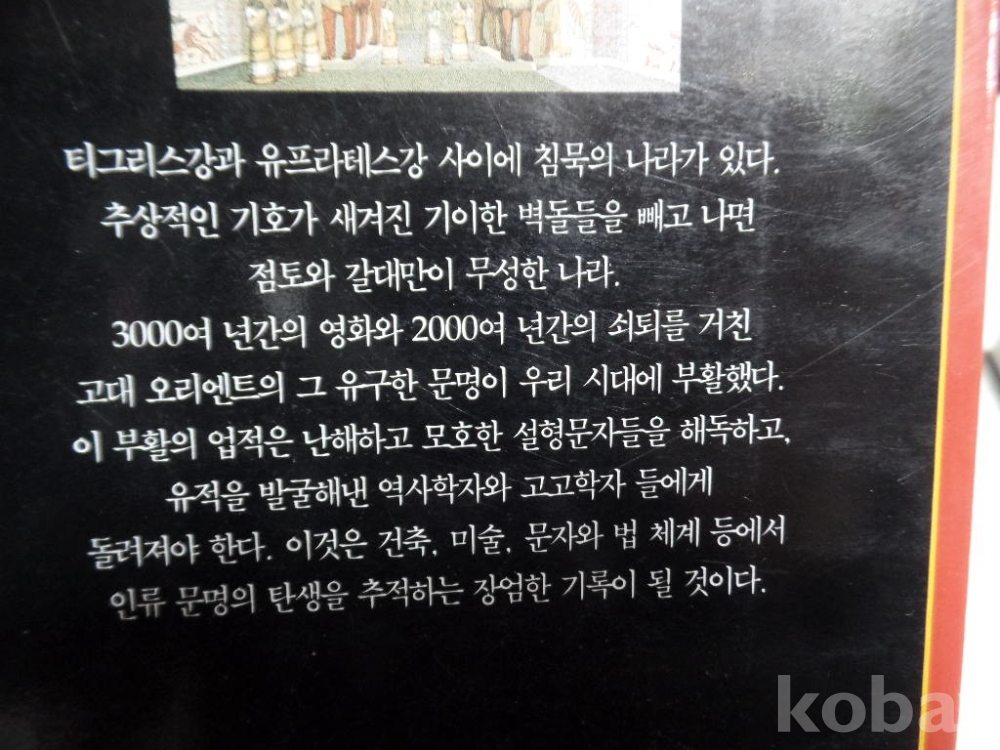 티그리스강과 유프라테스강 사이에 침묵의 나라가 있다.
추상적인 기호가 새겨진 기이한 벽돌들을 빼고 나면
점토와 갈대만이 무성한 나라.
3000여 년간의 영화와 2000여 년간의 쇠퇴를 거친
고대 오리엔트의 그 유구한 문명이 우리 시대에 부활했다.
이 부활의 업적은 난해하고 모호한 설형문자들을 해독하고,
유적을 발굴해낸 역사학자와 고고학자 들에게
돌려져야 한다. 이것은 건축, 미술, 문자와 법 체계 등에서
인류 문명의 탄생을 추적하는 장엄한 기록이 될 것이다.